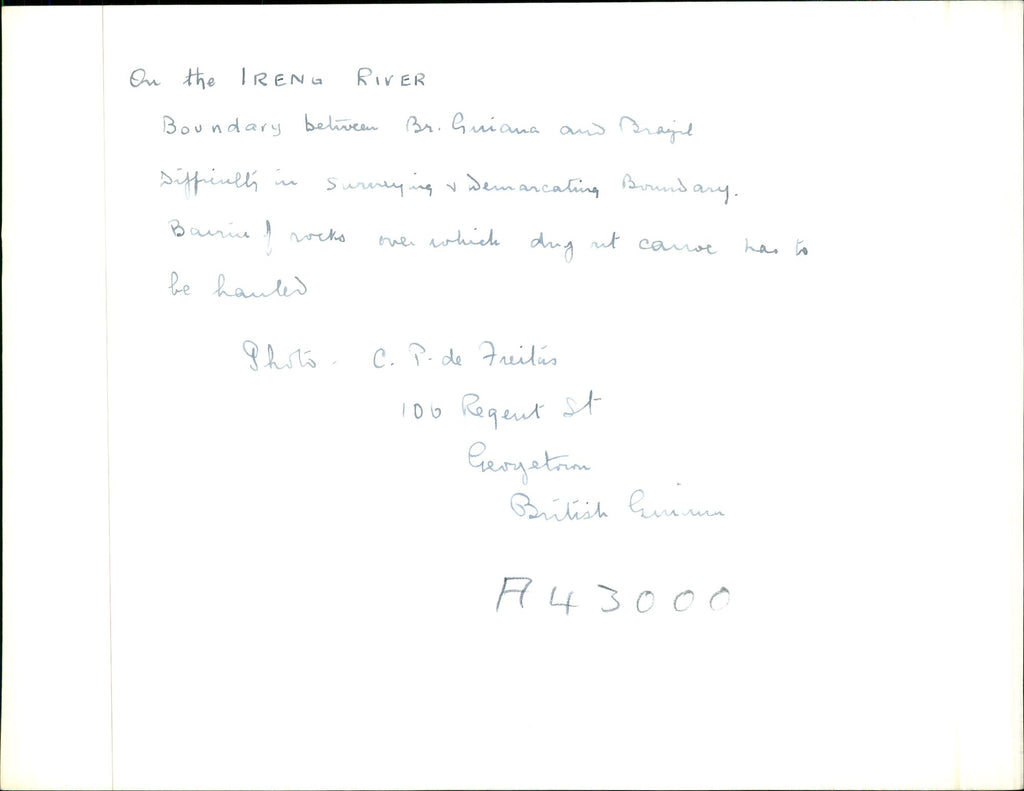 On the IRENG RIVER
Boundary between Br. Guiana and Brazil
Difficulty in surveying & Demarcating Boundary.
Barrier of rocks over which dug out canoe has to
be hauled
Photo - C. P. de Freitas
100 Regent St
Georgetown
British Guiana
A43000